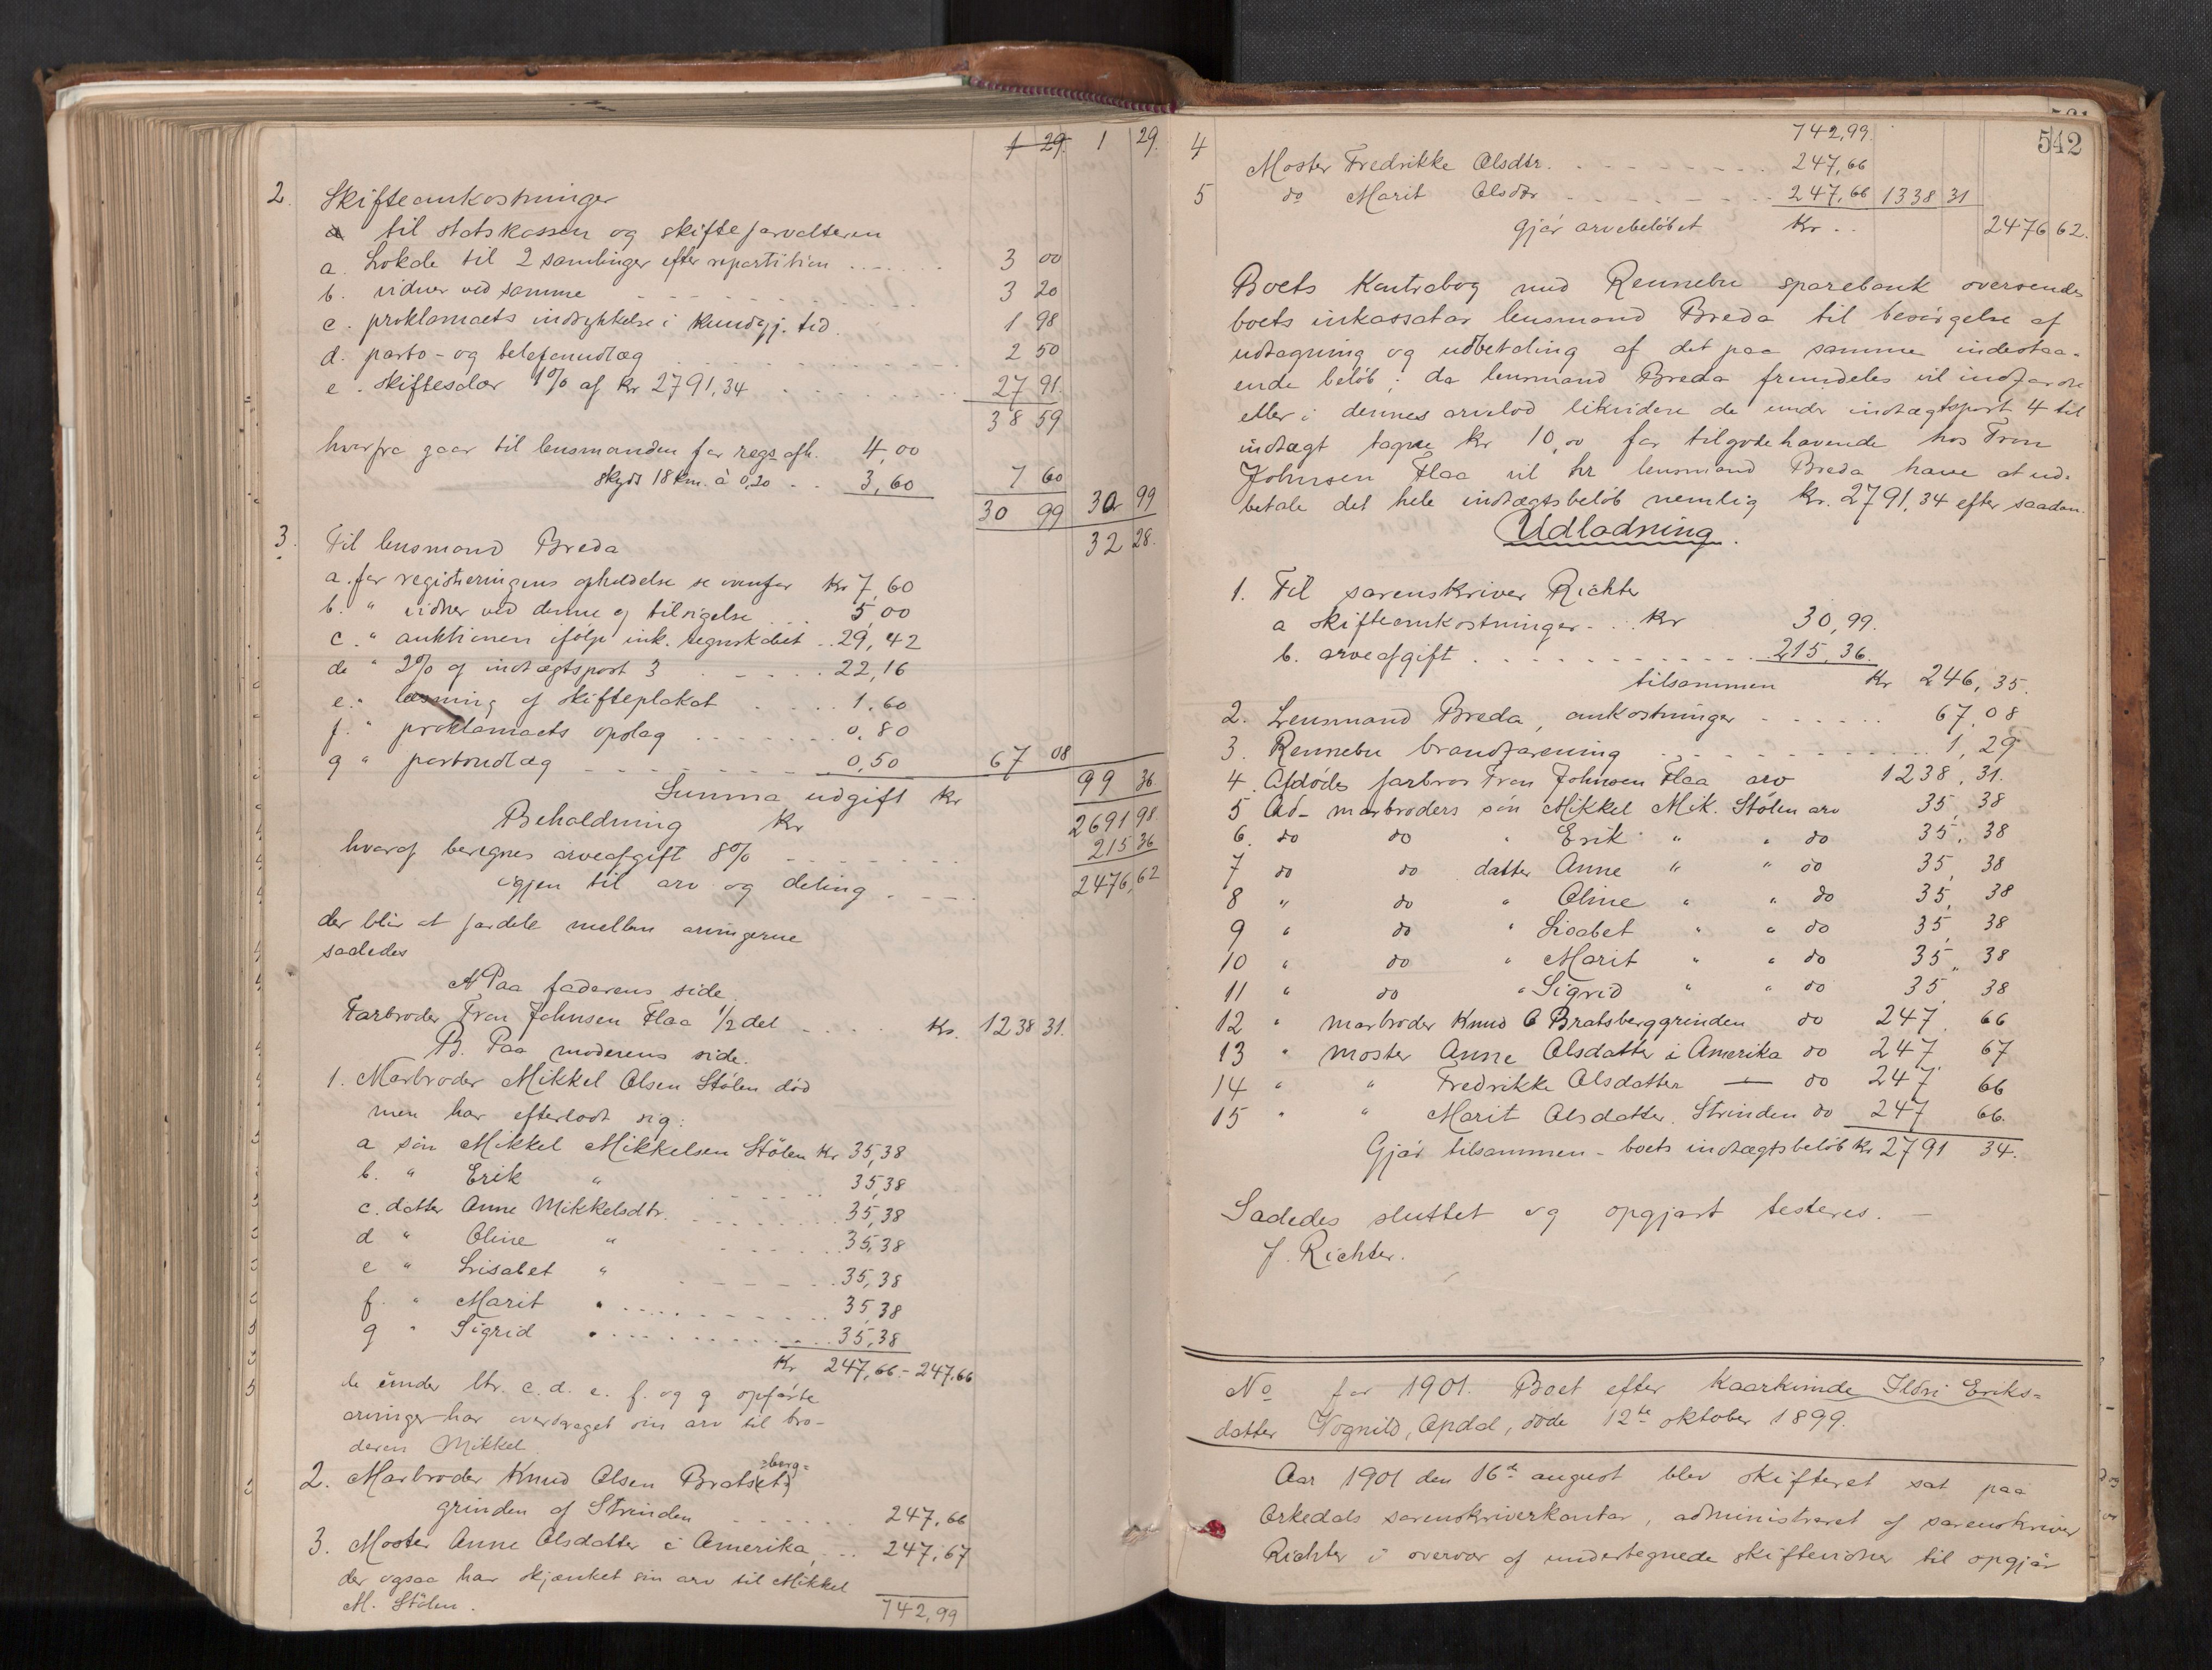 1 29. 1 29.
2. Skifteomkostninger
a til statskassen og skifteforvalteren
a. Lokale til 2 samlinger efter repartition 3 00
b. vidner ved samme 3 20
c. proklamaets indrykkelse i Kundgj. tid. 1 98
d. porto- og telefonudlæg 2 50
e. skiftesalær 1% af kr 2791,34 27 91.
38 59
hvorfra gaar til lensmanden for regs afh. 4,00
skyds 18 Km. à 0,20 3,60 7 60
30 99 30 99
32 28.
3. Til lensmand Breda
a. for registreringens afholdelse se ovenfor Kr 7,60
b. " vidner ved denne og tilsigelse 5,00
c. " auktionen ifölge ink. regnskabet 29,42
d. " 2% af indtægtspost 3 22,16
e. " læsning af skifteplakat 1,60
f. " proklamaets opslag 0,80
g " portoudlæg 0,50 67 08
Summa udgift Kr 99 36
Beholdning Kr 2691 98
hvoraf beregnes arveafgift 8% 215 36
igjen til arv og deling 2476,62
der blir at fordele mellem arvingerne
saaledes
A. Paa faderens side.
Farbroder Tron Johnsen Flaa 1/2 del Kr. 1238 31.
B. Paa moderens side.
1. Morbroder Mikkel Olsen Stölen död
men har efterladt sig:
a sön Mikkel Mikkelsen Stölen Kr 35,38
b. " Erik " 35,38
c. datter Anne Mikkelsdtr. 35,38
d " Oline " 35,38
e " Lisabet " 35,38
f. " Marit " 35,38
g " Sigrid " 35,38
Kr 247,66 - 247,66
de under ltr. c. d. e. f. og g opförte
arvinger har overdraget sin arv til bro-
deren Mikkel.
2. Morbroder Knud Olsen Brats berg=
grinden af Strinden 247,66
3. Moster Anne Olsdatter i Amerika, 247,67
der ogsaa har skjænket sin arv til Mikkel
M. Stölen. 742,99
542
742,99.
4 Moster Fredrikke Olsdtr. 247,66
5 do Marit Olsdtr 247,66 1338 31
gjör arvebelöbet Kr. 2476 62.
Boets Kontrabog med Rennebu sparebank oversendes
boets inkassator lensmand Breda til besörgelse af
udtagning og udbetaling af det paa samme indestaa-
ende belöb; da lensmand Breda fremdeles vil indfordre
eller i dennes arvelod likvidere de under indtægtspost 4 til
indtægt tagne kr 10,00 for tilgodehavende hos Tron
Johnsen Flaa vil hr lensmand Breda have at ud-
betale det hele indtægtsbelöb nemlig kr. 2791,34 efter saadan
Udlodning.
1. Til sorenskriver Richter
a skifteomkostninger Kr 30,99.
b. arveafgift 215,36.
tilsammen Kr 246,35.
2. Lensmand Breda, omkostninger 67,08
3. Rennebu brandforening 1,29
4. Afdödes farbror Tron Johnsen Flaa arv 1238,31.
5 Ad- morbroders sön Mikkel Mik. Stölen arv 35,38
6. do do " Erik " " do 35,38
7 do do datter Anne " " do 35,38
8 " do " Oline " " do 35,38
9 " do " Lisabet " " do 35,38
10 " do " Marit " " do 35,38
11 " do " Sigrid " " do 35,38
12 " morbroder Knud O Bratsberggrinden do 247,66
13 " moster Anne Olsdatter i Amerika do 247 67
14 " " Fredrikke Olsdatter — do 247 66
15 " " Marit Olsdatter. Strinden do 247 66.
Gjör tilsammen - boets indtægtsbelöb Kr 2791 34.
Saaledes sluttet og opgjort testeres. —
J. Richter.
No for 1901. Boet efter Kaarkvinde Ildri Eriks=
datter Vognild, Opdal, döde 12te oktober 1899.
Aar 1901 den 16de august blev skifteret sat paa
Orkedals sorenskriverkontor, administreret af sorenskriver
Richter i overvær af undertegnede skiftevidner til opgjör